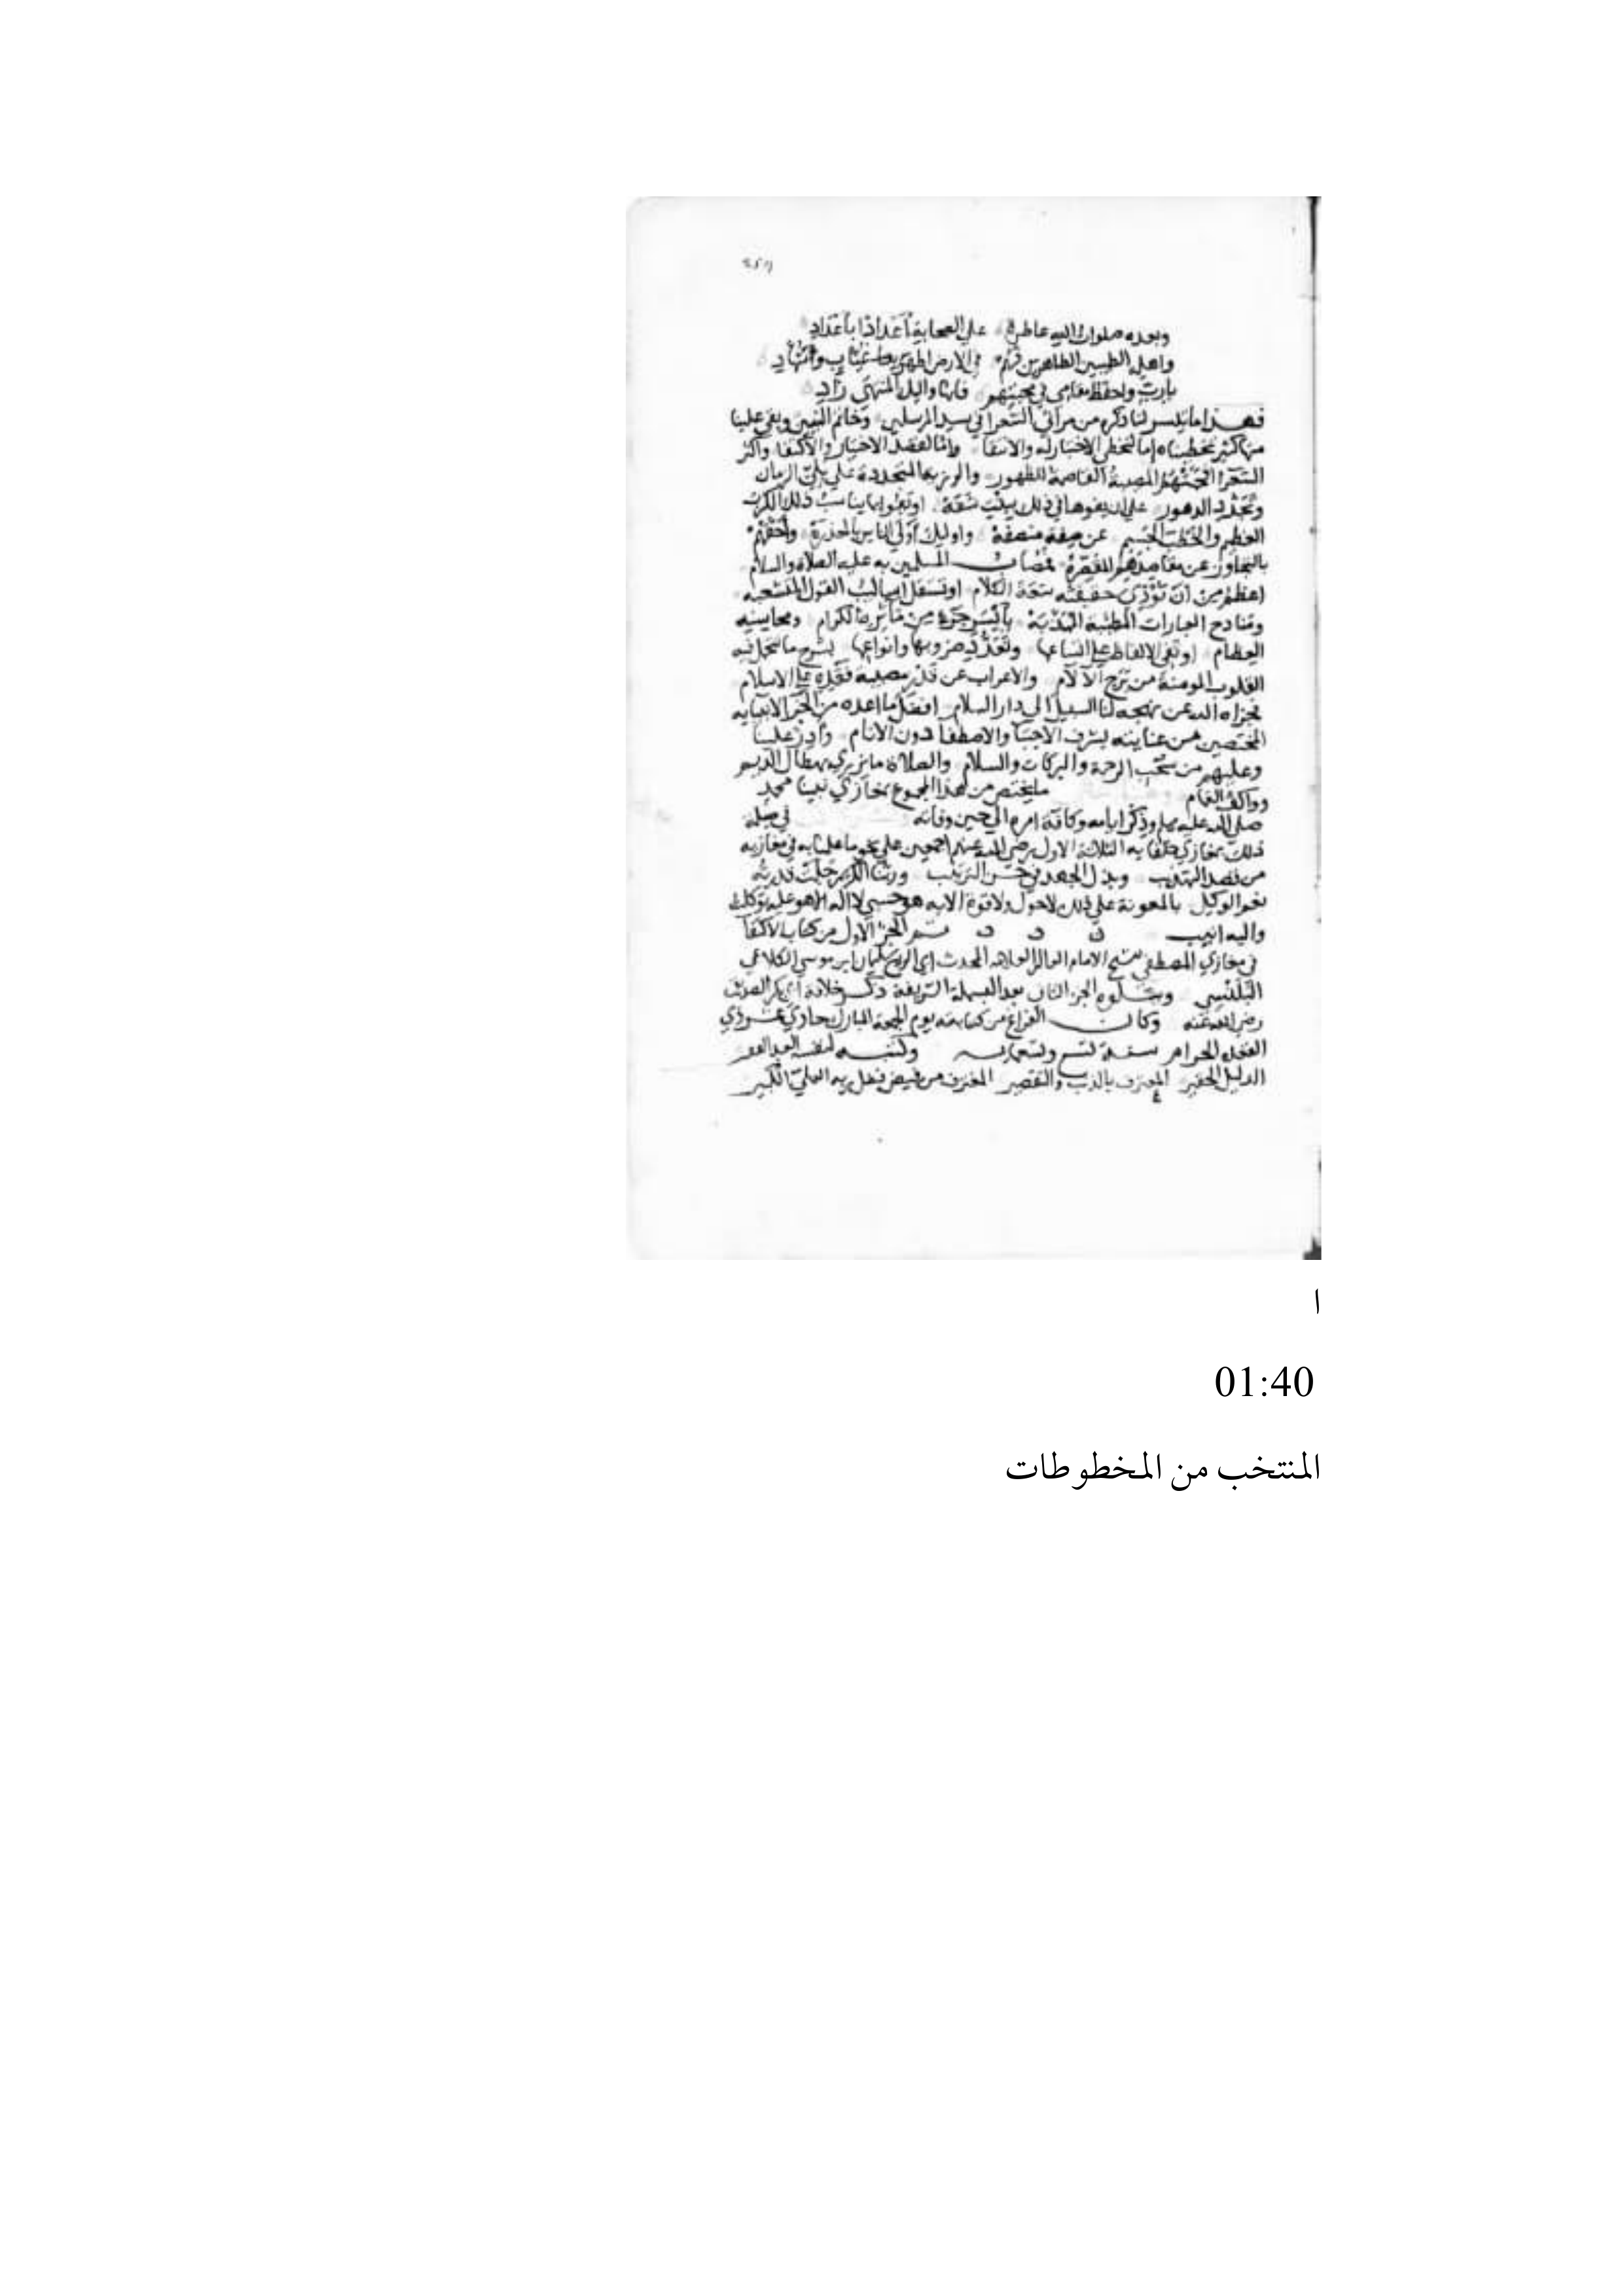 وبعده صلوات الله عاطرة على الصحابة أعدادا بأعداد
واهله الطيبين الطاهرين في الارض
يارب واحفظ مقامي في محبتهم فانها واليك المنتهى زاد
فهذا ما تيسر لنا ذكره من مراثي الشعرا في سيد المرسلين وخاتم النبيين وبقي علينا
منها كثير تخطيناه اما لتخطي الاختيار له والانتقا واما لقصد الاختيار والاكتفا واكثر
الشعرا المصيبة القاصمة للظهور والرزية المتجددة على بلى الزمان
وتجدد الدهور على ان يفوهوا في ذلك ببنت شفة او يفوا بما يناسب ذلك الكرب
العظيم والخطب الجسيم عن صفة منصفة واوليك أولى الناس بالمعذرة وأحقهم
بالتجاوز عن مقاصدهم المقصرة فمصاب المسلمين به عليه الصلاة والسلام
اعظم من ان تؤدي حقيقته سعة الكلام او تستقل اساليب القول المتشعبة
ومنادح العبارات بأيسر جزء من مآثره الكرام ومحاسنه
العظام او تفي الالفاظ على اتساعها وتعدد ضروبها وانواعها بشرح ما تتحمل فيه
القلوب المومنة من برح الآلام والاعراب عن قدر مصيبة فقده على الاسلام
فجزاه الله عن نهجه لنا السبيل الى دار السلام افضل ما اعده من الجزا لانبيايه
المختصين من عنايته بشرف الاجتبا والاصطفا دون الانام وأدر علينا
وعليهم من سحب الرحمة والبركات والسلام والصلاة ما يزري بهطال الديم
وواكف الغمام ما يختص من هذا المجموع بمغازي نبينا محمد
صلى الله عليه وسلم وذكر ايامه وكافة امره الى حين وفاته في صلة
ذلك بمغازي خلفايه الثلاثة الاول رضي الله عنهم اجمعين على نحو ما عملنا به في مغازيه
من قصد التهذيب وبذل الجهد في حسن الترتيب وربنا الكريم جلت قدرته
نعم الوكيل بالمعونة على ذلك لاحول ولا قوة الا به هو حسبي لا اله الا هو عليه توكلت
واليه انيب تم الجز الاول من كتاب الاكتفا
في مغازي المصطفى للشيخ الامام العالم العلامة المحدث ابي الربيع سليمان ابن موسى الكلاعي
البلنسي ويتلوه الجز الثاني بعد البسملة الشريفة ذكر خلافة ابي بكر الصديق
رضي الله عنه وكان الفراغ من كتابته يوم الجمعة المبارك حادي عشر ذي
القعدة الحرام سنة تسع وتسعمايه وكتبه لنفسه العبد الفقير
الذليل الحقير المعترف بالذنب والتقصير المغترف من فيض فضل ربه العلي الكبير
ا
01:40
المنتخب من المخطوطات